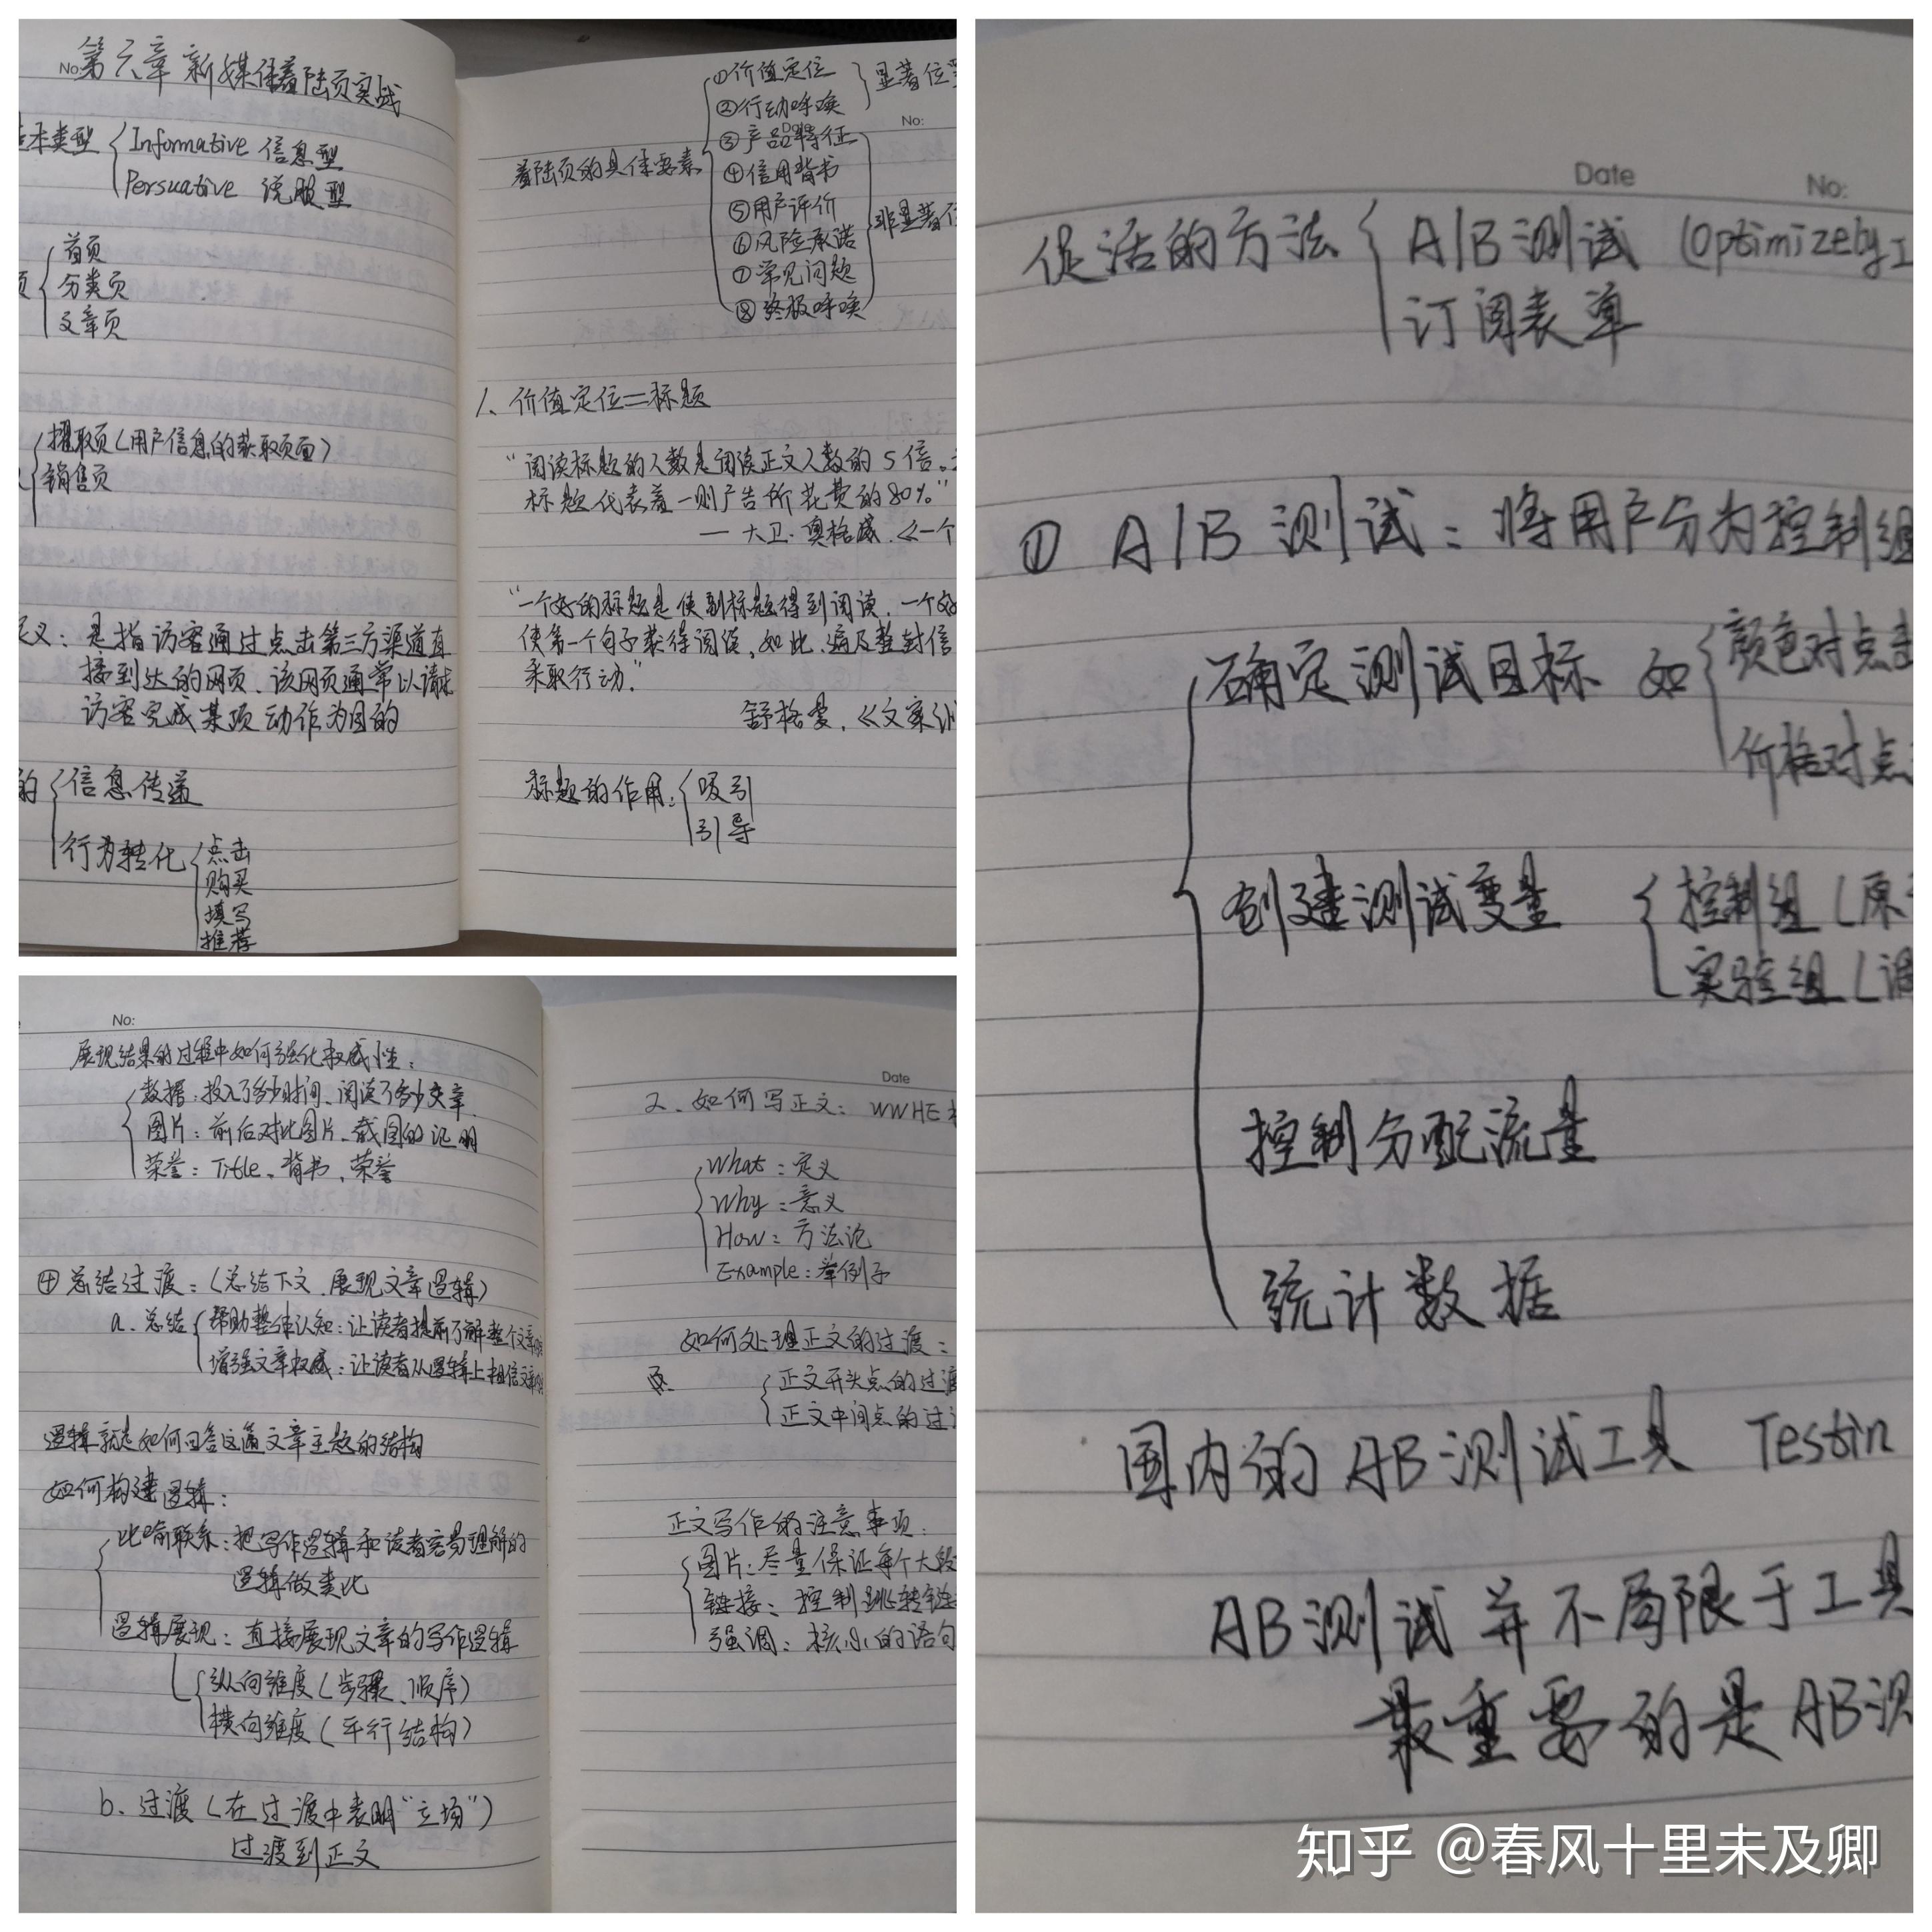 No:
第六章 新媒体着陆页实战
基本类型 Informative 信息型
Persuative 说服型
页 首页
分类页
文章页
攫取页（用户信息的获取页面）
销售页
定义：是指访客通过点击第三方渠道直
接到达的网页、该网页通常以请求
访客完成某项动作为目的
的 信息传递
行为转化 点击
购买
填写
推荐
No:
着陆页的具体要素
①价值定位
②行动呼唤
显著位
③产品特征
④信用背书
⑤用户评价
⑥风险承诺
⑦常见问题
⑧终极呼唤
非显著位
1、价值定位=标题
“阅读标题的人数是阅读正文人数的5倍。
标题代表着一则广告所花费的80%”
— 大卫·奥格威.《一个
“一个好的标题是使副标题得到阅读，一个好
使第一个句子获得阅读，如此、遍及整封信
采取行动.”
舒格曼，《文案训
标题的作用： 吸引
引导
No:
展现结果的过程中如何强化权威性：
数据：投入了多少时间、阅读了多少文章、
图片：前后对比图片、截图的证明
荣誉：Title、背书、荣誉
④总结过渡：（总结下文、展现文章逻辑）
a. 总结 帮助整体认知：让读者提前了解整个文章
增强文章权威：让读者从逻辑上相信文章
逻辑就是如何回答这篇文章主题的结构
如何构建逻辑：
比喻联系：把写作逻辑和读者容易理解的
逻辑做类比
逻辑展现：直接展现文章的写作逻辑
纵向维度（步骤、顺序）
横向维度（平行结构）
b. 过渡（在过渡中表明“立场”）
过渡到正文
Date
2. 如何写正文： WWHE
What：定义
Why：意义
How：方法论
Example：举例子
如何处理正文的过渡：
正文开头点的过渡
正文中间点的过
正文写作的注意事项：
图片：尽量保证每个大段
链接：控制跳转链
强调：核心的语句
Date No:
促活的方法 A/B 测试 (Optimizely
订阅表单
① A/B 测试：将用户分为控制组
确定测试目标 如 颜色对点击
价格对点
创建测试变量 控制组（原
实验组（调
控制分配流量
统计数据
国内的AB测试工具 Testin
AB测试并不局限于工具
最重要的是AB测
知乎 @春风十里未及卿